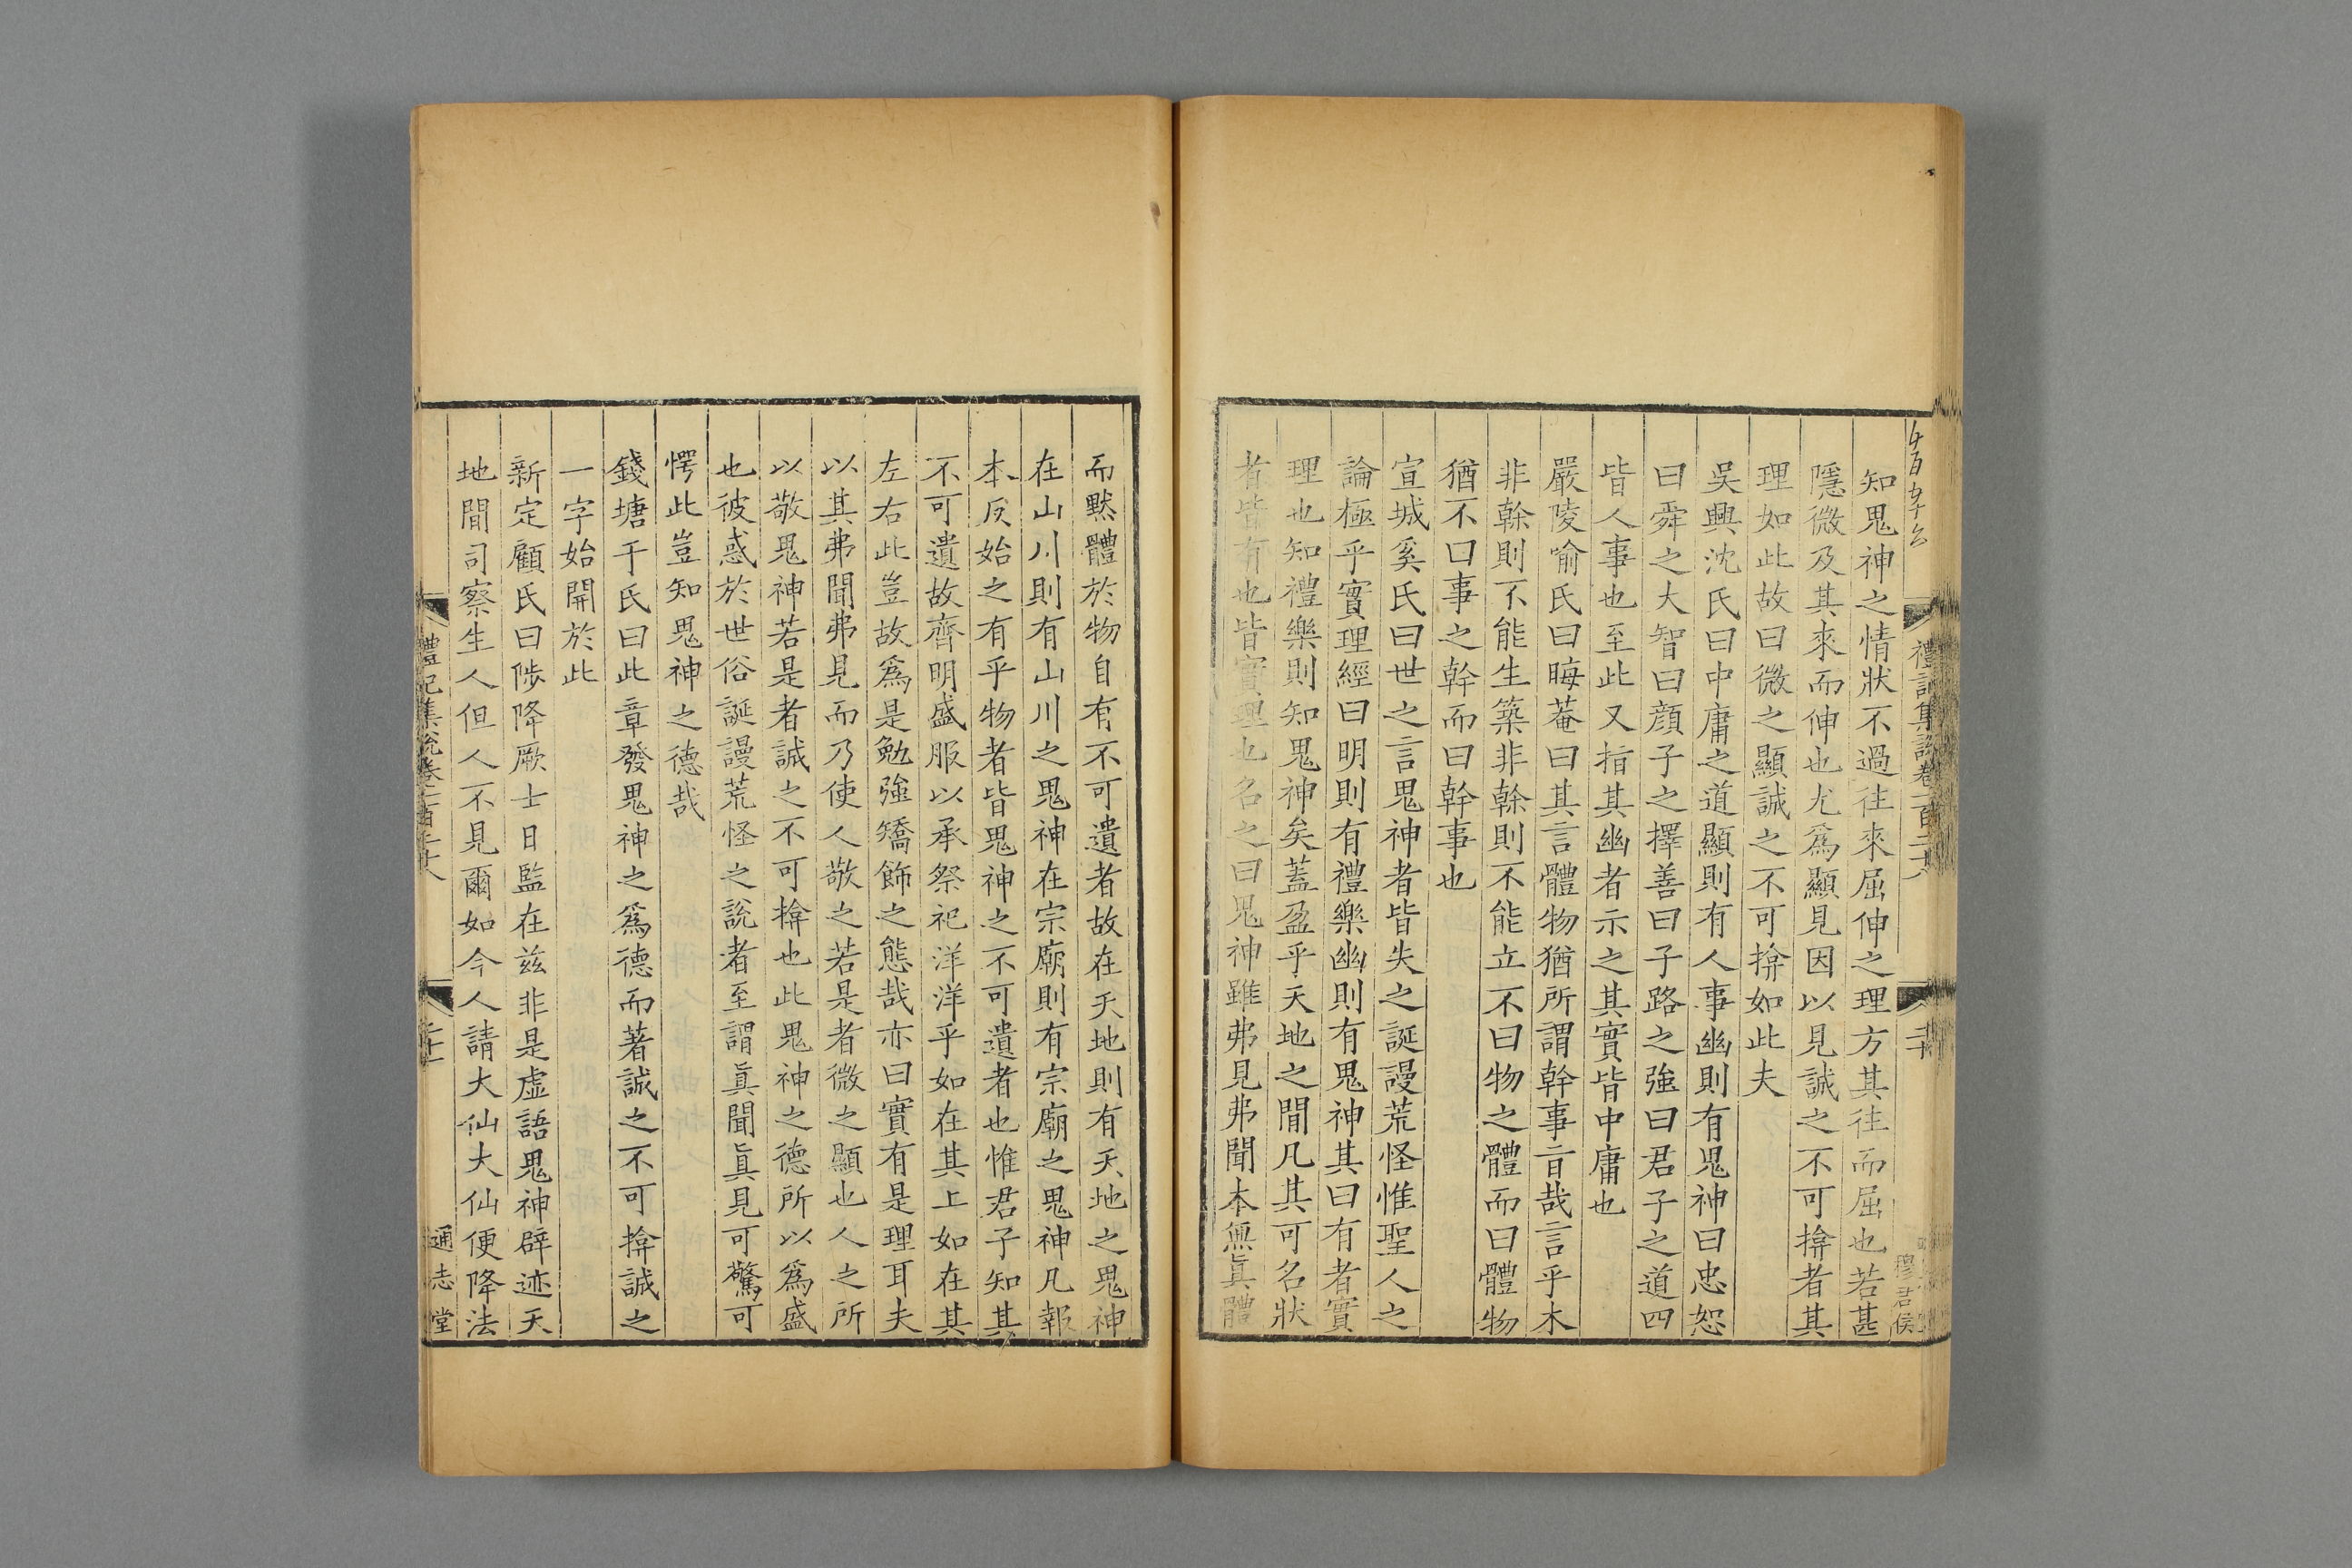 知鬼神之情狀不過往來屈伸之理方其往而屈也若甚
隱微及其來而伸也尤爲顯見因以見誠之不可揜者其
理如此故曰微之顯誠之不可揜如此夫
吳興沈氏曰中庸之道顯則有人事幽則有鬼神曰忠恕
曰舜之大智曰顔子之擇善曰子路之強曰君子之道四
皆人事也至此又指其幽者示之其實皆中庸也
嚴陵喻氏曰晦菴曰其言體物猶所謂幹事旨哉言乎木
非榦則不能生築非榦則不能立不曰物之體而曰體物
猶不曰事之幹而曰幹事也
宣城奚氏曰世之言鬼神者皆失之誕謾荒怪惟聖人之
論極乎實理經曰明則有禮樂幽則有鬼神其曰有者實
理也知禮樂則知鬼神矣蓋盈乎天地之閒凡其可名狀
者皆有也皆實理也名之曰鬼神雖弗見弗聞本無眞體
禮記集說卷一百二十八
二十
穆君侯
而默體於物自有不可遺者故在天地則有天地之鬼神
在山川則有山川之鬼神在宗廟則有宗廟之鬼神凡報
本反始之有乎物者皆鬼神之不可遺者也惟君子知其
不可遺故齊明盛服以承祭祀洋洋乎如在其上如在其
左右此豈故爲是勉強矯飾之態哉亦曰實有是理耳夫
以其弗聞弗見而乃使人敬之若是者微之顯也人之所
以敬鬼神若是者誠之不可揜也此鬼神之德所以爲盛
也彼惑於世俗誕謾荒怪之說者至謂眞聞眞見可驚可
愕此豈知鬼神之德哉
錢塘于氏曰此章發鬼神之爲德而著誠之不可揜誠之
一字始開於此
新定顧氏曰陟降厥士日監在兹非是虛語鬼神辟迹天
地閒司察生人但人不見爾如今人請大仙大仙便降法
禮記集說卷一百二十八
二十一
通志堂